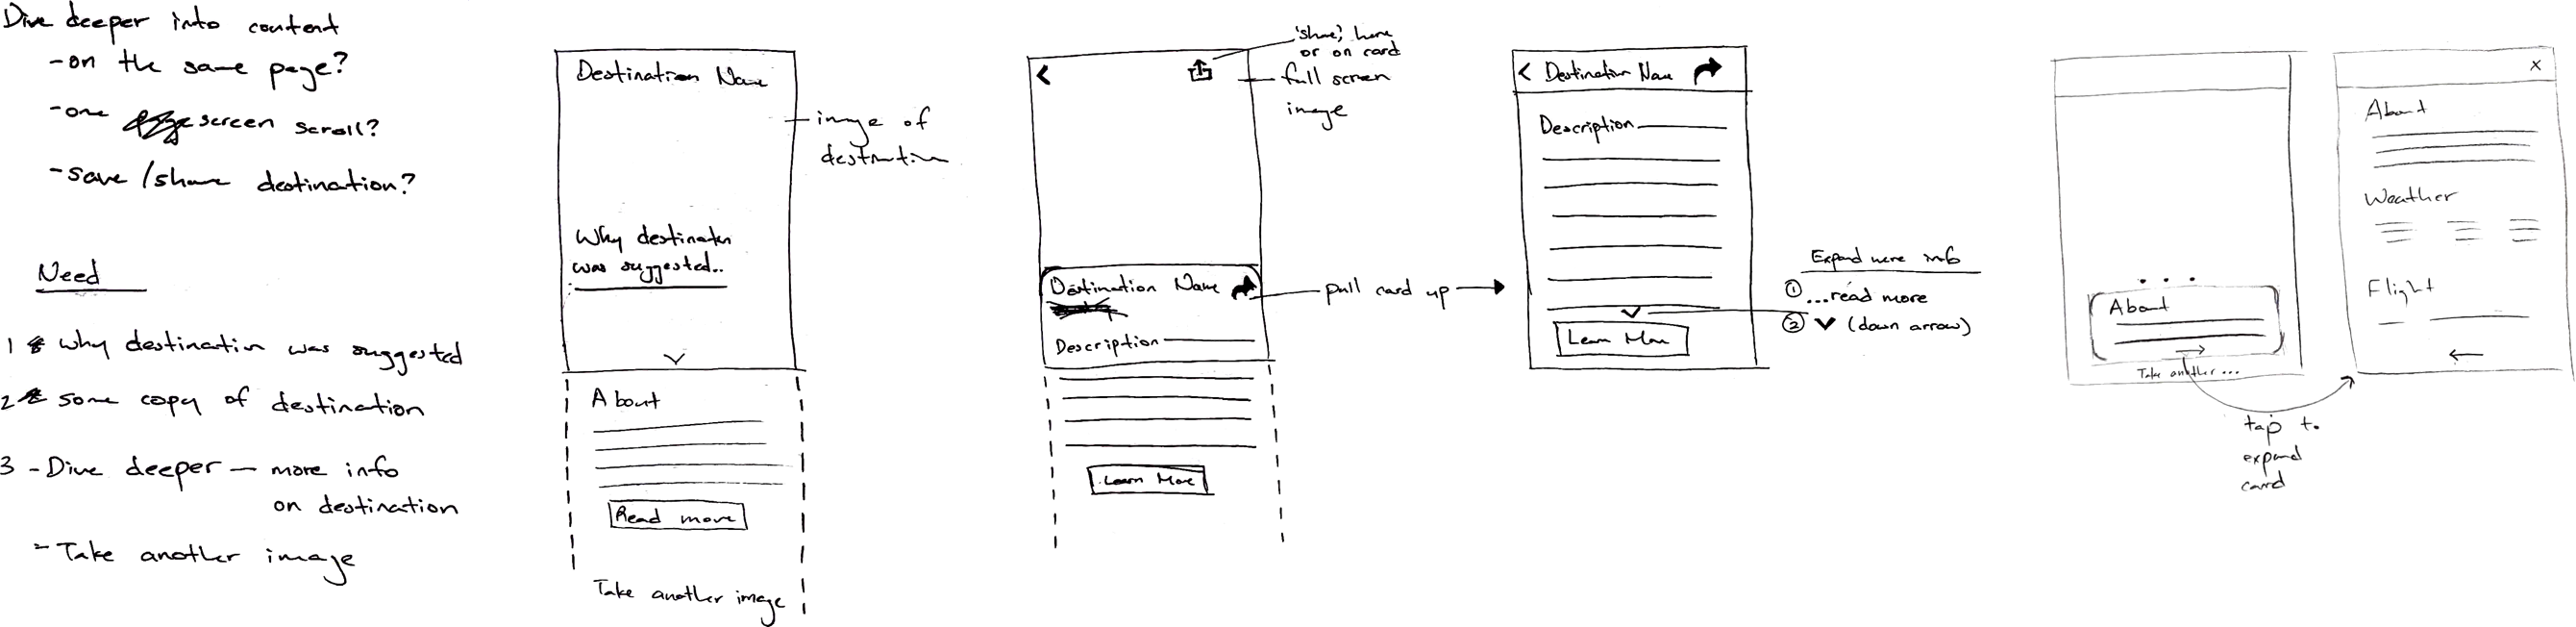 Dive deeper into content
-on the same page?
-one screen scroll?
-save/share destination?
Need
1 why destination was suggested
2 some copy of destination
3 -Dive deeper — more info
on destination
- Take another image
Destination Name
image of
destination
Why destination
was suggested..
About
Read more
Take another image
'share' here
or on card
full screen
image
Destination Name
Description
Learn More
pull card up
Destination Name
Description
Learn More
Expand more info
① ...read more
② (down arrow)
About
Take another ...
tap to
expand
card
X
About
Weather
Flight